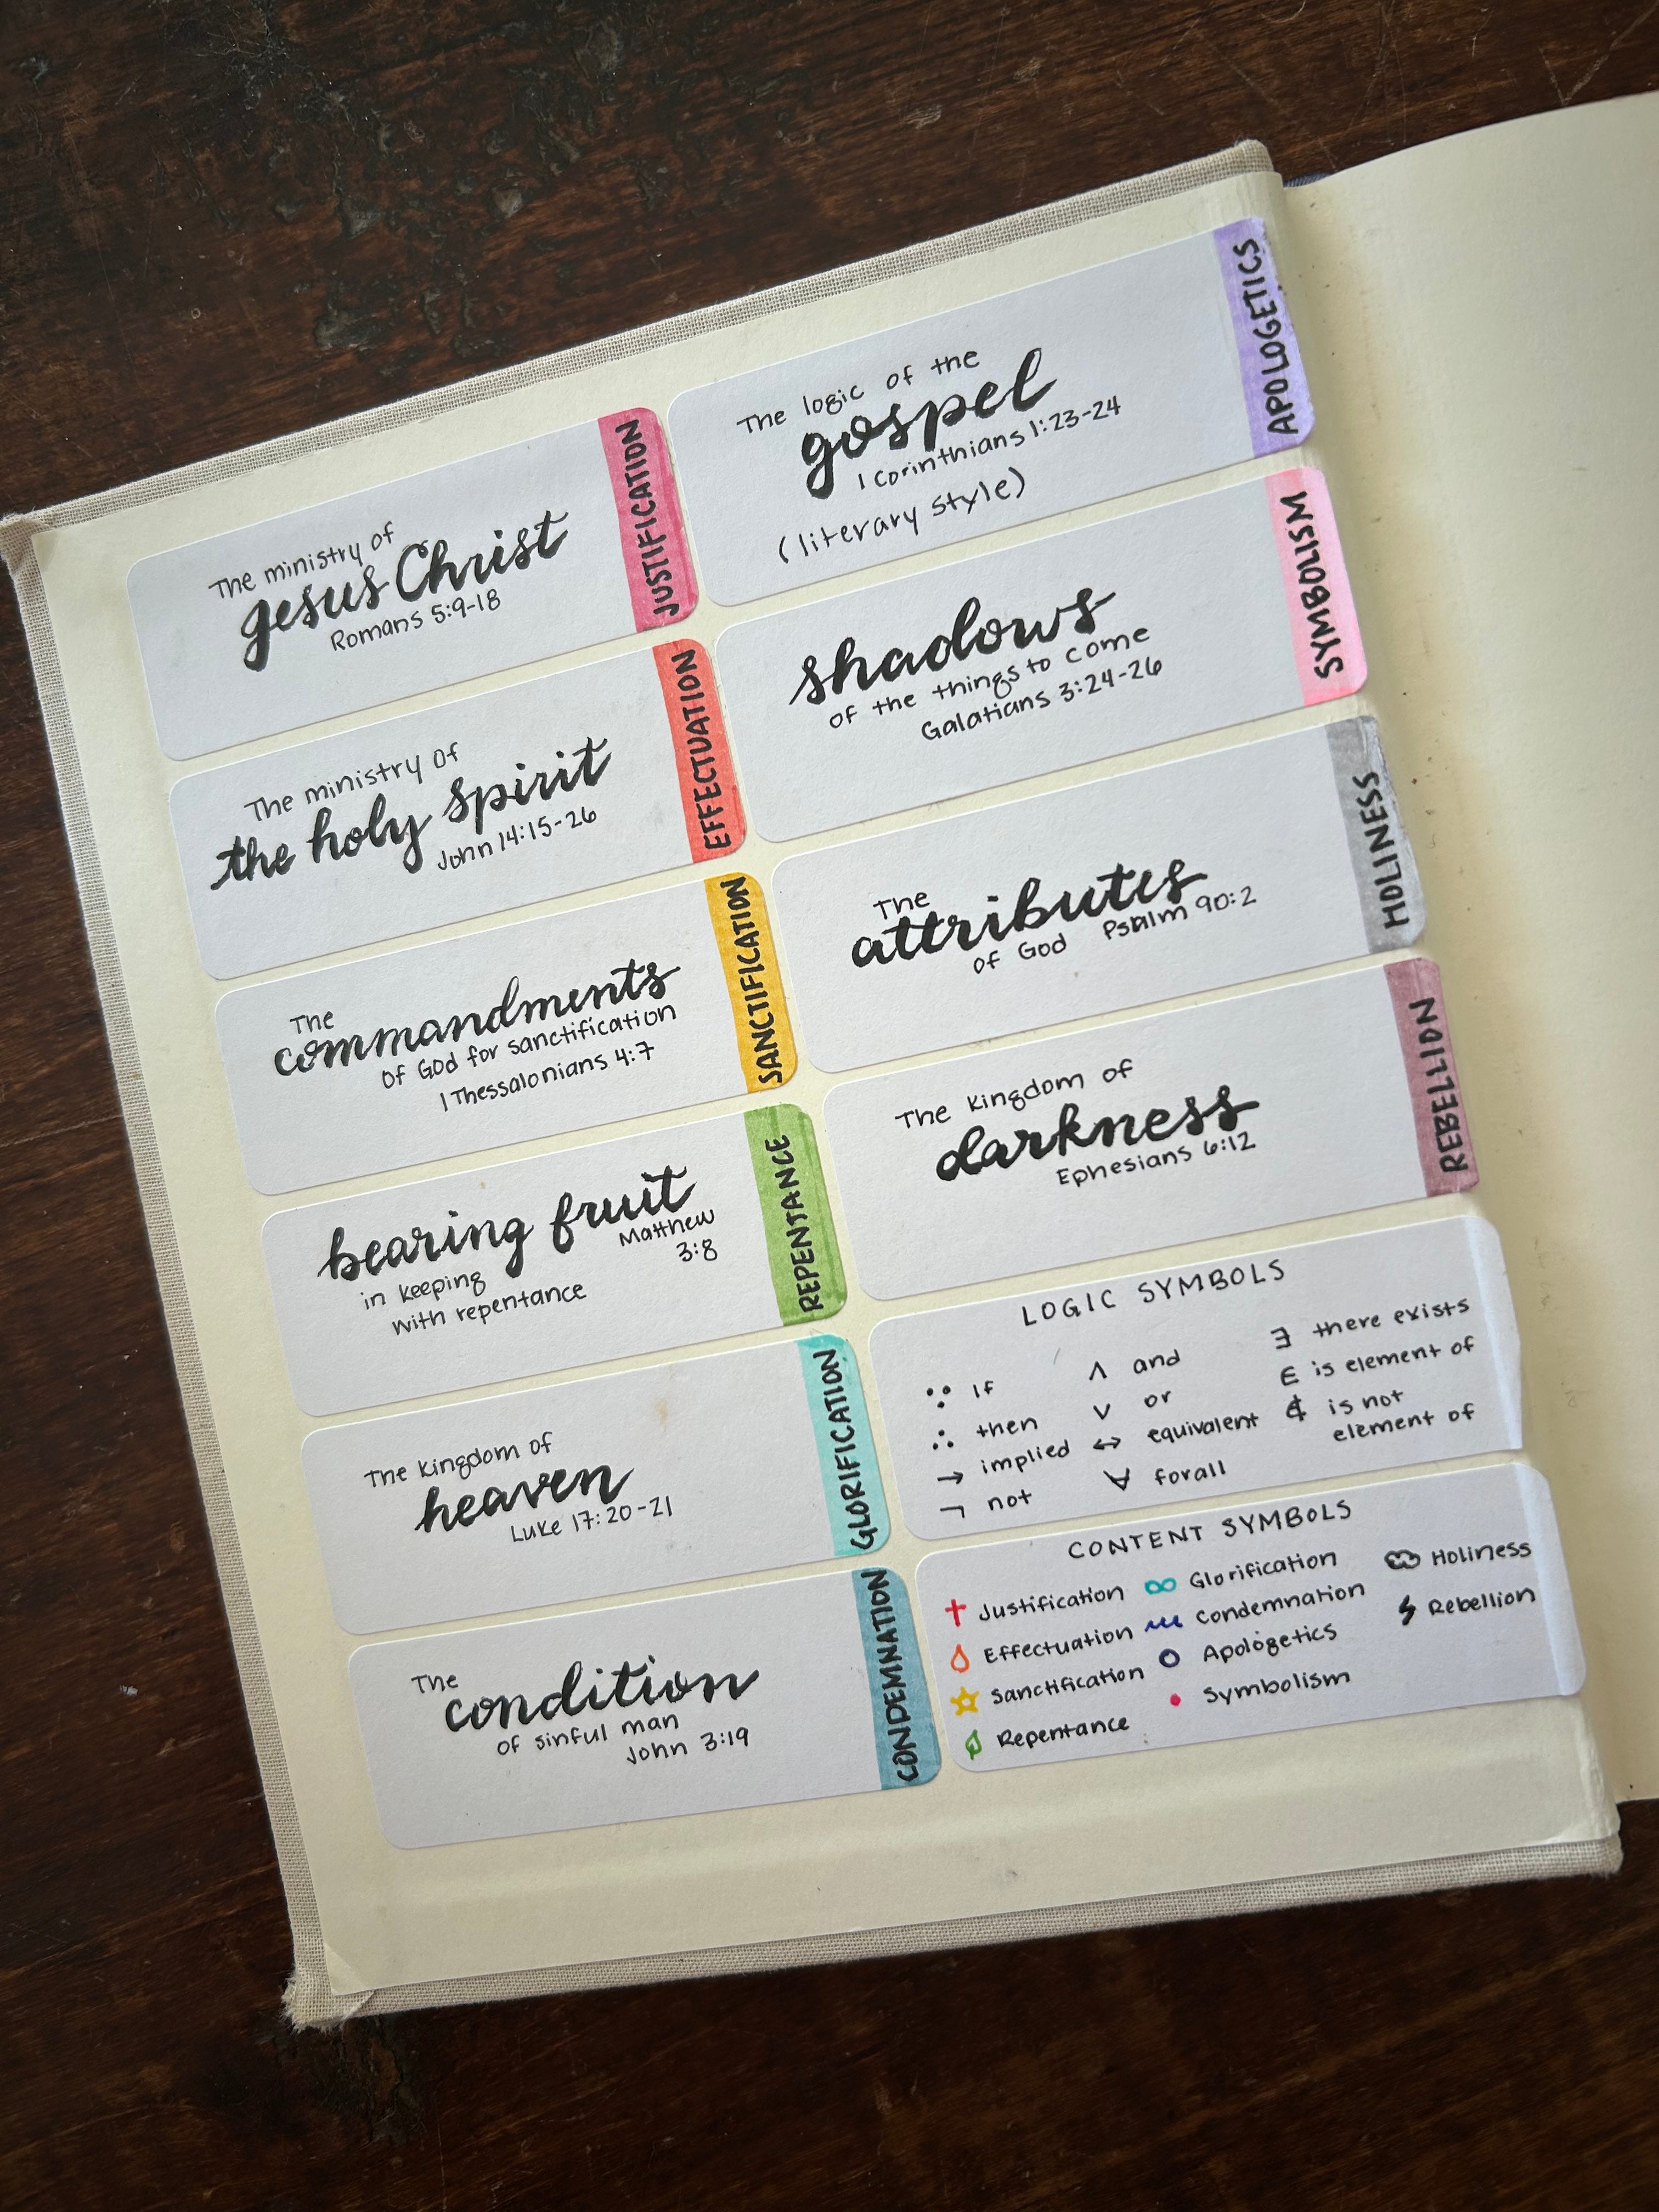 The ministry of
Jesus Christ
Romans 5:9-18
JUSTIFICATION
The ministry of
the holy spirit
John 14:15-26
EFFECTUATION
The
commandments
of God for sanctification
1 Thessalonians 4:7
SANCTIFICATION
bearing fruit
Matthew
3:8
in keeping
with repentance
REPENTANCE
The Kingdom of
heaven
Luke 17:20-21
GLORIFICATION
The
condition
of sinful man
John 3:19
CONDEMNATION
The logic of the
gospel
1 Corinthians 1:23-24
(literary style)
APOLOGETICS
shadows
of the things to come
Galatians 3:24-26
SYMBOLISM
The
attributes
of God Psalm 90:2
HOLINESS
The Kingdom of
darkness
Ephesians 6:12
REBELLION
LOGIC SYMBOLS
∵ If
∴ then
→ implied
¬ not
∧ and
∨ or
↔ equivalent
∀ forall
∃ there exists
∈ is element of
∉ is not
element of
CONTENT SYMBOLS
Justification
Effectuation
Sanctification
Repentance
Glorification
Condemnation
Apologetics
Symbolism
Holiness
Rebellion